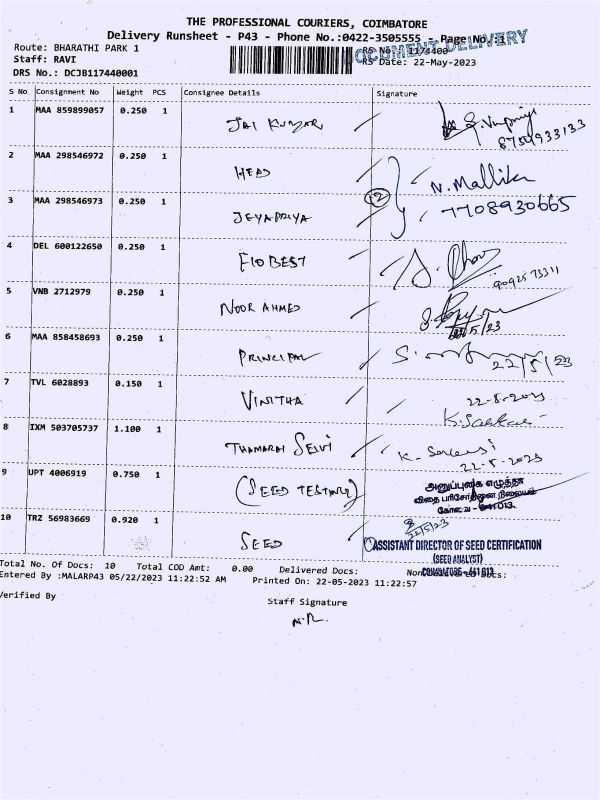 THE PROFESSIONAL COURIERS, COIMBATORE
Delivery Runsheet - P43 - Phone No.:0422-3505555 - Page No.:1
DOCUMENT DELIVERY
Route: BHARATHI PARK 1
RS No. 1174400
Staff: RAVI
RS Date: 22-May-2023
DRS No.: DCJB117440001
S No Consignment No Weight PCS Consignee Details Signature
1 MAA 859899057 0.250 1 JAI KUMAR
8754933133
2 MAA 298546972 0.250 1 HEAD
N. Mallika
3 MAA 298546973 0.250 1 JEYAPRIYA
7708930665
4 DEL 600122650 0.250 1 FIOBEST
9092573311
5 VNB 2712979 0.250 1 NOOR AHMED
6 MAA 858458693 0.250 1 PRINCIPAL
22/5/23
7 TVL 6028893 0.150 1 VINITHA
22-5-2023
8 IXM 503705737 1.100 1 THAMARAI SELVI
22-5-2023
9 UPT 4006919 0.750 1 (SEED TESTING)
அனுப்புகை எழுத்தர்
விதை பரிசோதனை நிலையம்
10 TRZ 56983669 0.920 1 SEED
22/5/23
ASSISTANT DIRECTOR OF SEED CERTIFICATION
(SEED ANALYST)
COIMBATORE - 641 013
Total No. Of Docs: 10 Total COD Amt: 0.00 Delivered Docs:
Entered By :MALARP43 05/22/2023 11:22:52 AM Printed On: 22-05-2023 11:22:57
Verified By
Staff Signature